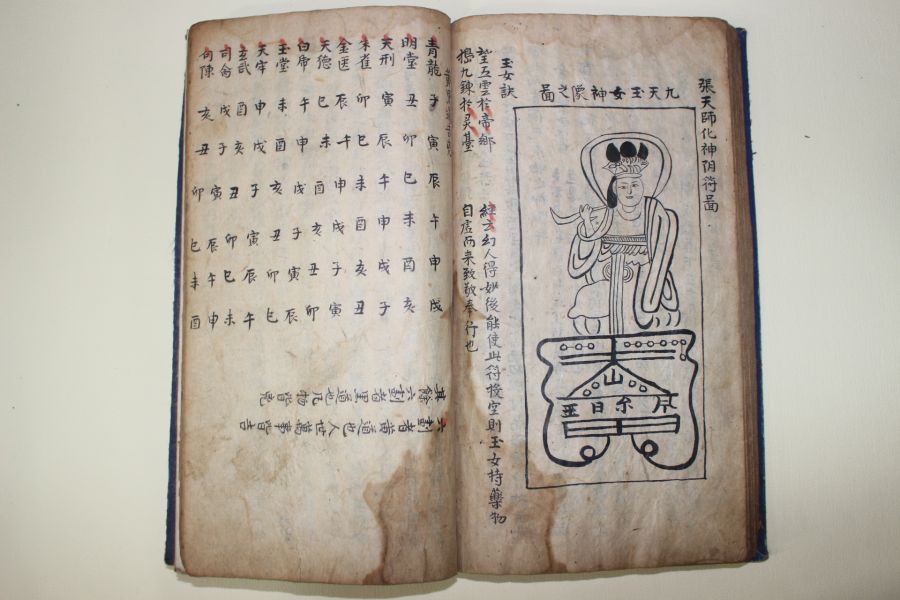 張天師化神阴符畐
九天玉女神僊之畐
山
月糸日
玉女訣
望五雲於帝鄉
搗九鍊於灵臺
經方幻人得妙後能使此符投空則玉女持藥物
自虛而来致敬奉行也
青龍子寅辰午申戌
明堂丑卯巳未酉亥
天刑寅辰午申戌子
朱雀卯巳未酉亥丑
金匱辰午申戌子寅
天德巳未酉亥丑卯
白虎午申戌子寅辰
玉堂未酉亥丑卯巳
天牢申戌子寅辰午
玄武酉亥丑卯巳未
司命戌子寅辰午申
句陳亥丑卯巳未酉
六刻者黃道也人世萬事皆吉
其餘六刻者黑道也凡物皆